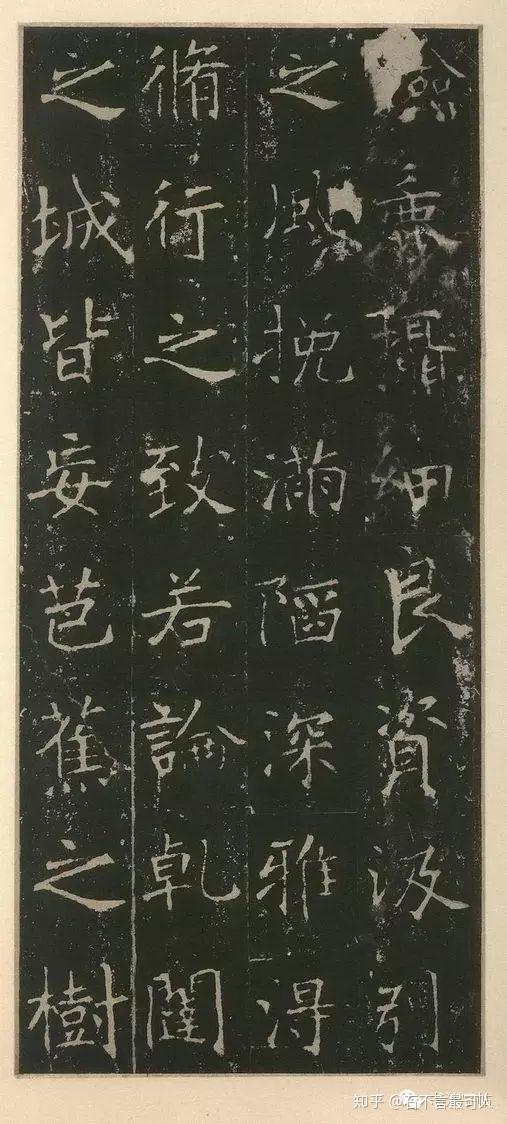 細良資汲引
之風挽滿陷深雅得
脩行之致若論乹闥
之城皆妄芭蕉之樹
知乎 @石不言最可